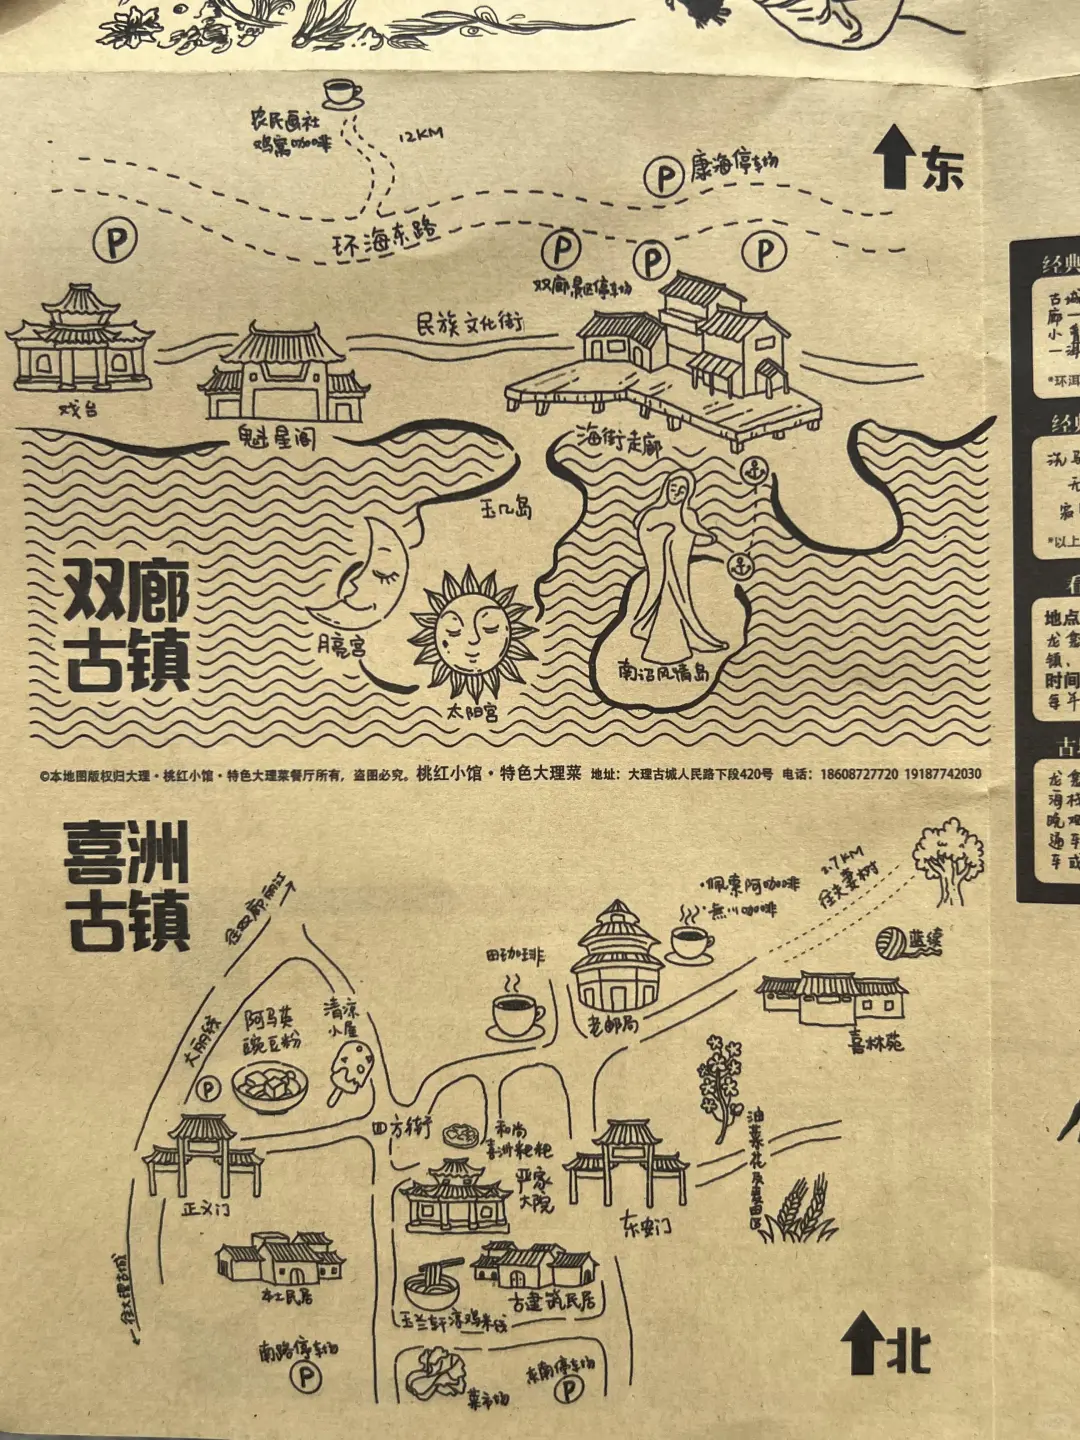 农民画社
鸡窝咖啡
12KM
东
P
康海停车场
P
环海东路
P
P
P
双廊景区停车场
民族文化街
戏台
魁星阁
海街走廊
玉几岛
双廊
古镇
月亮宫
太阳宫
南诏风情岛
©本地图版权归大理·桃红小馆·特色大理菜餐厅所有，盗图必究。桃红小馆·特色大理菜 地址：大理古城人民路下段420号 电话：18608727720 19187742030
喜洲
古镇
往双廊.丽江
大丽线
P
阿马英
豌豆粉
清凉
小屋
田咖啡
·佩索阿咖啡
·无川咖啡
老邮局
2.7KM
往夫妻树
蓝续
喜林苑
四方街
和尚
喜洲粑粑
严家
大院
正义门
东安门
油菜花及麦田区
本土民居
往大理古城
玉兰轩凉鸡米线
古建筑民居
南路停车场
P
菜市场
东南停车场
P
北
经典
古城
廊一
小
一
*环洱
经典
*以上
地点
龙龛
镇、
时间
每年
龙龛